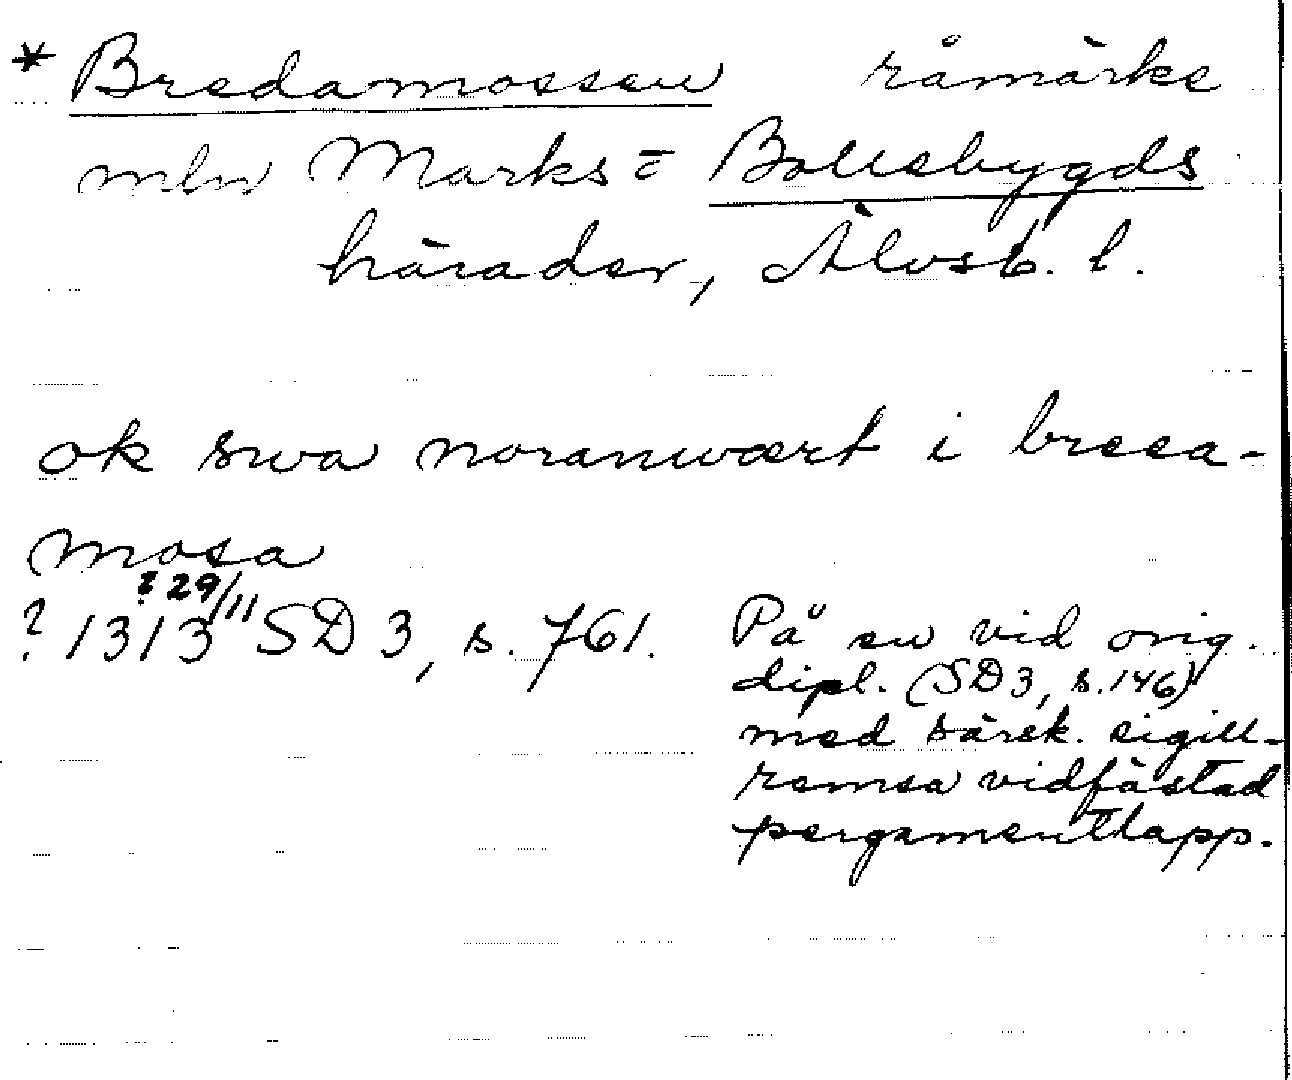 * Bredamossen råmärke
mln Marks= Bollebygds
härader, Älvsb. l.
ok swa noranwært i breea-
mosa
? 29/11
? 1313 SD 3, s. 761.
På en vid orig.
dipl. (SD 3, s. 146)
med särsk. sigill-
remsa vidfästad
pergamentlapp.